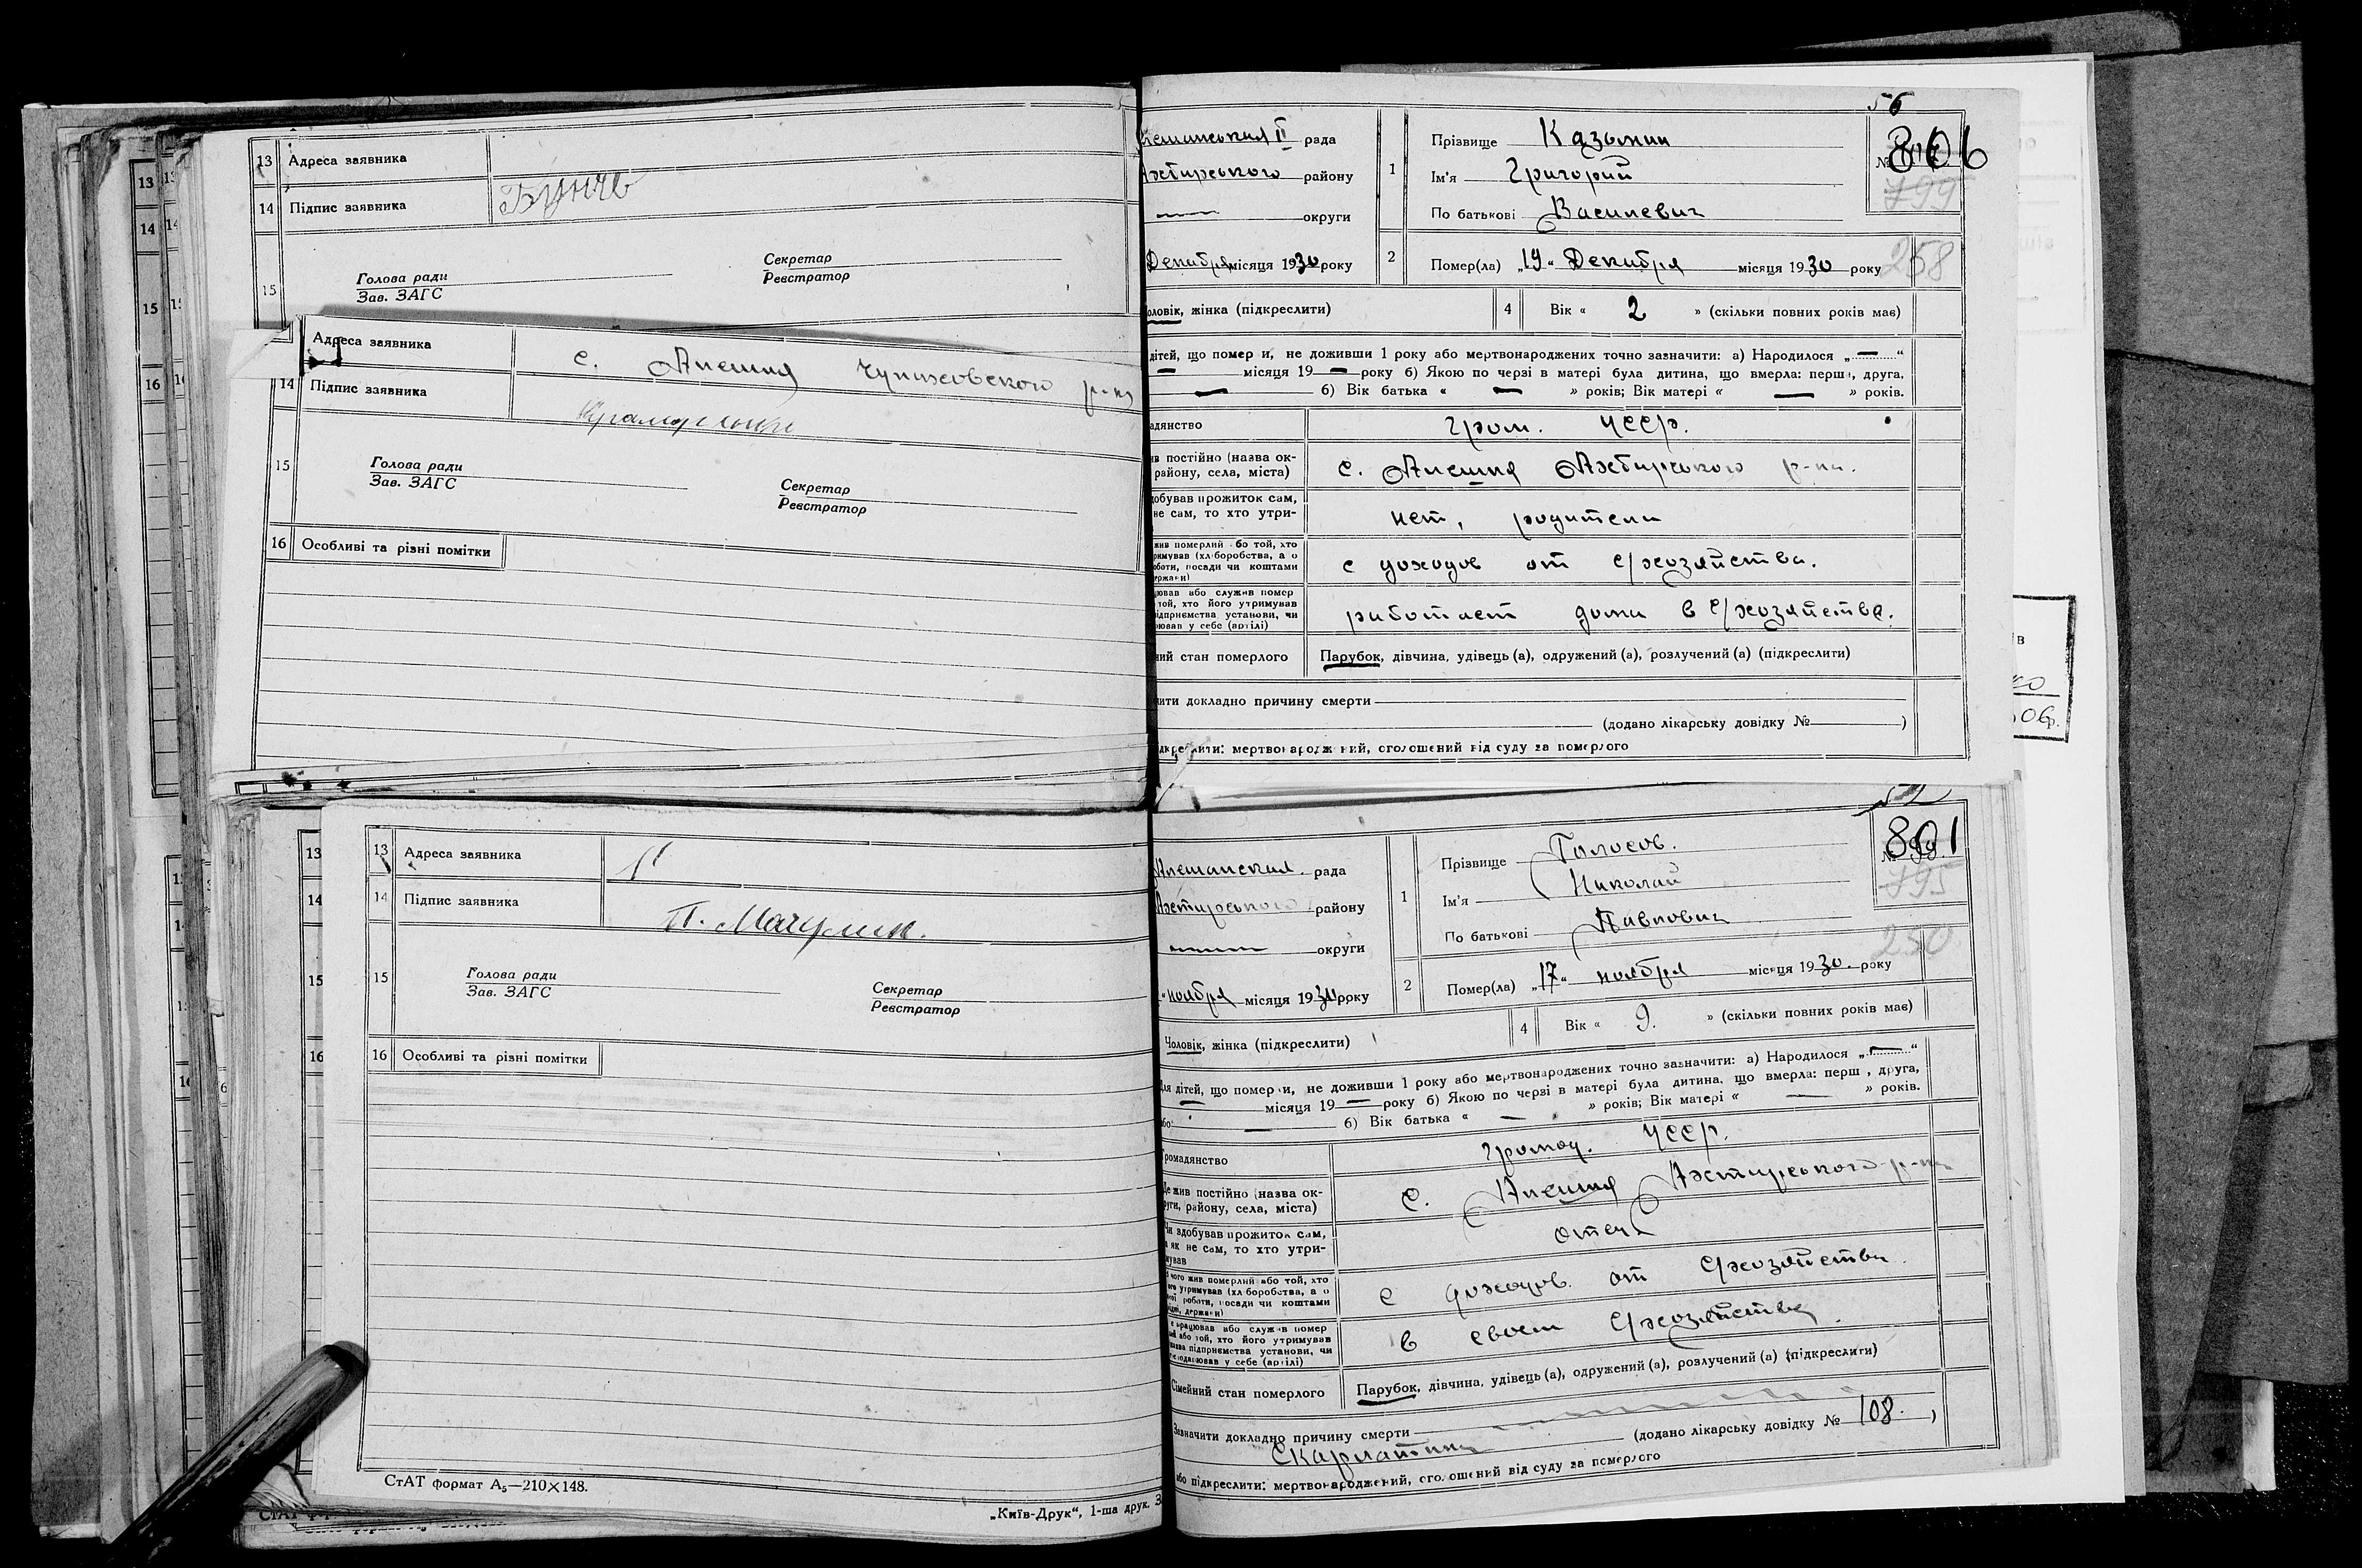 13 Адреса заявника
14 Підпис заявника
15 Голова ради
Зав. ЗАГС
Секретар
Реєстратор
Адреса заявника с. Алешня Чупаховского р-на
14 Підпис заявника
15 Голова ради
Зав. ЗАГС
Секретар
Реєстратор
16 Особливі та різні помітки
56
рада
806
799
району
округи
Декабря місяця 1930 року
1 Прізвище Казьмин
Ім'я Григорий
По батькові Василевич
2 Помер(ла) „19“ Декабря місяця 1930 року
258
оловік, жінка (підкреслити)
4 Вік « 2 » (скільки повних років має)
дітей, що помер и, не доживши 1 року або мертвонароджених точно зазначити: а) Народилося „ — “
— місяця 19 — року б) Якою по черзі в матері була дитина, що вмерла: перш , друга,
— б) Вік батька « — » років; Вік матері « — » років.
адянство гром. УССР.
ив постійно (назва ок-
району, села, міста) с. Алешня Ахтирського р-на.
добував прожиток сам,
не сам, то хто утри- нет, родители
жив померлий або той, хто
римував (хліборобства, а о
оботи, посади чи коштами
ержави) с доходов от с/хозяйства.
ював або служив помер
той, хто його утримував
ідприємства установи, чи
ював у себе (артілі) работает дома в с/хозяйстве.
ний стан померлого Парубок, дівчина, удівець (а), одружений (а), розлучений (а) (підкреслити)
ити докладно причину смерти
(додано лікарську довідку № )
дкреслити: мертвонароджений, оголошений від суду за померлого
13 Адреса заявника
14 Підпис заявника П. Мачулин.
15 Голова ради
Зав. ЗАГС
Секретар
Реєстратор
16 Особливі та різні помітки
СтАТ формат А5—210×148.
„Київ-Друк“, 1-ша друк. З
Алешанская рада
Ахтирського району
округи
ноября місяця 1930 року
801
795
1 Прізвище Голосов.
Ім'я Николай
По батькові Павлович
250
2 Помер(ла) „17“ ноября місяця 1930. року
Чоловік, жінка (підкреслити)
4 Вік « 9. » (скільки повних років має)
Для дітей, що померли, не доживши 1 року або мертвонароджених точно зазначити: а) Народилося „ — “
— місяця 19 — року б) Якою по черзі в матері була дитина, що вмерла: перш , друга,
або — б) Вік батька « — » років; Вік матері « — » років.
Громадянство громод. УССР.
Де жив постійно (назва ок-
руги, району, села, міста) с. Алешня Ахтирського р-на
Чи здобував прожиток сам,
а як не сам, то хто утри-
мував отец
З чого жив померлий або той, хто
його утримував (хліборобства, а о
ної роботи, посади чи коштами
держави) с доходов от с/хозяйства.
е працював або служив помер
або той, хто його утримував
назва підприємства установи, чи
подарював у себе (артілі) в своем с/хозяйстве.
Сімейний стан померлого Парубок, дівчина, удівець (а), одружений (а), розлучений (а) (підкреслити)
Зазначити докладно причину смерти
Скарлатина (додано лікарську довідку № 108. )
або підкреслити: мертвонароджений, оголошений від суду за померлого